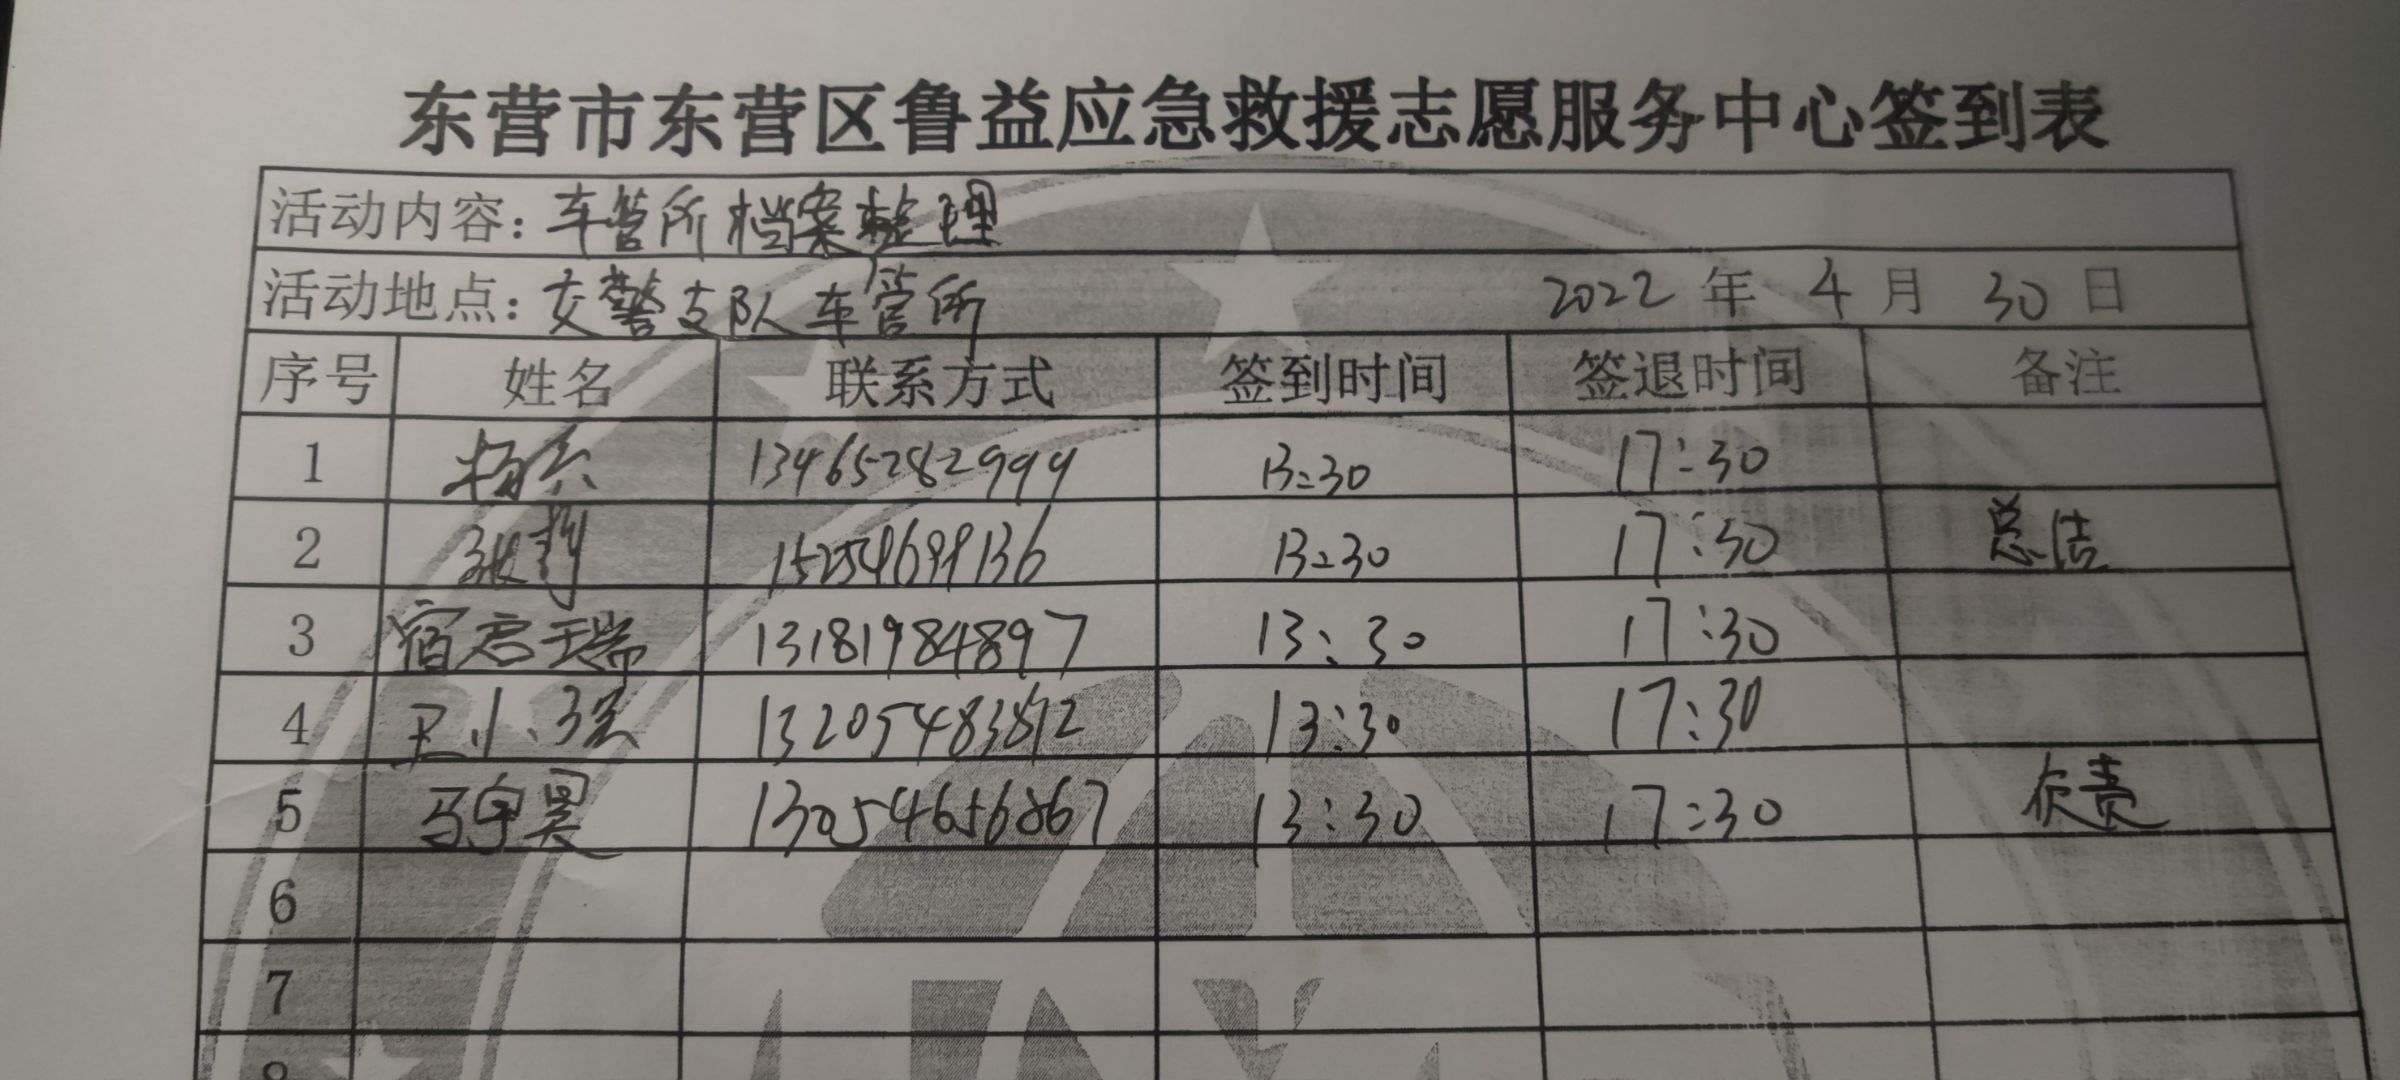 东营市东营区鲁益应急救援志愿服务中心签到表
活动内容：车管所档案整理
活动地点：交警支队车管所 2022 年 4 月 30 日
序号 姓名 联系方式 签到时间 签退时间 备注
1 13465282999 13:30 17:30
2 15254699136 13:30 17:30 总结
3 宿君瑞 13181984897 13:30 17:30
4 13205483872 13:30 17:30
5 马宇昊 13054656867 13:30 17:30 负责
6
7
8